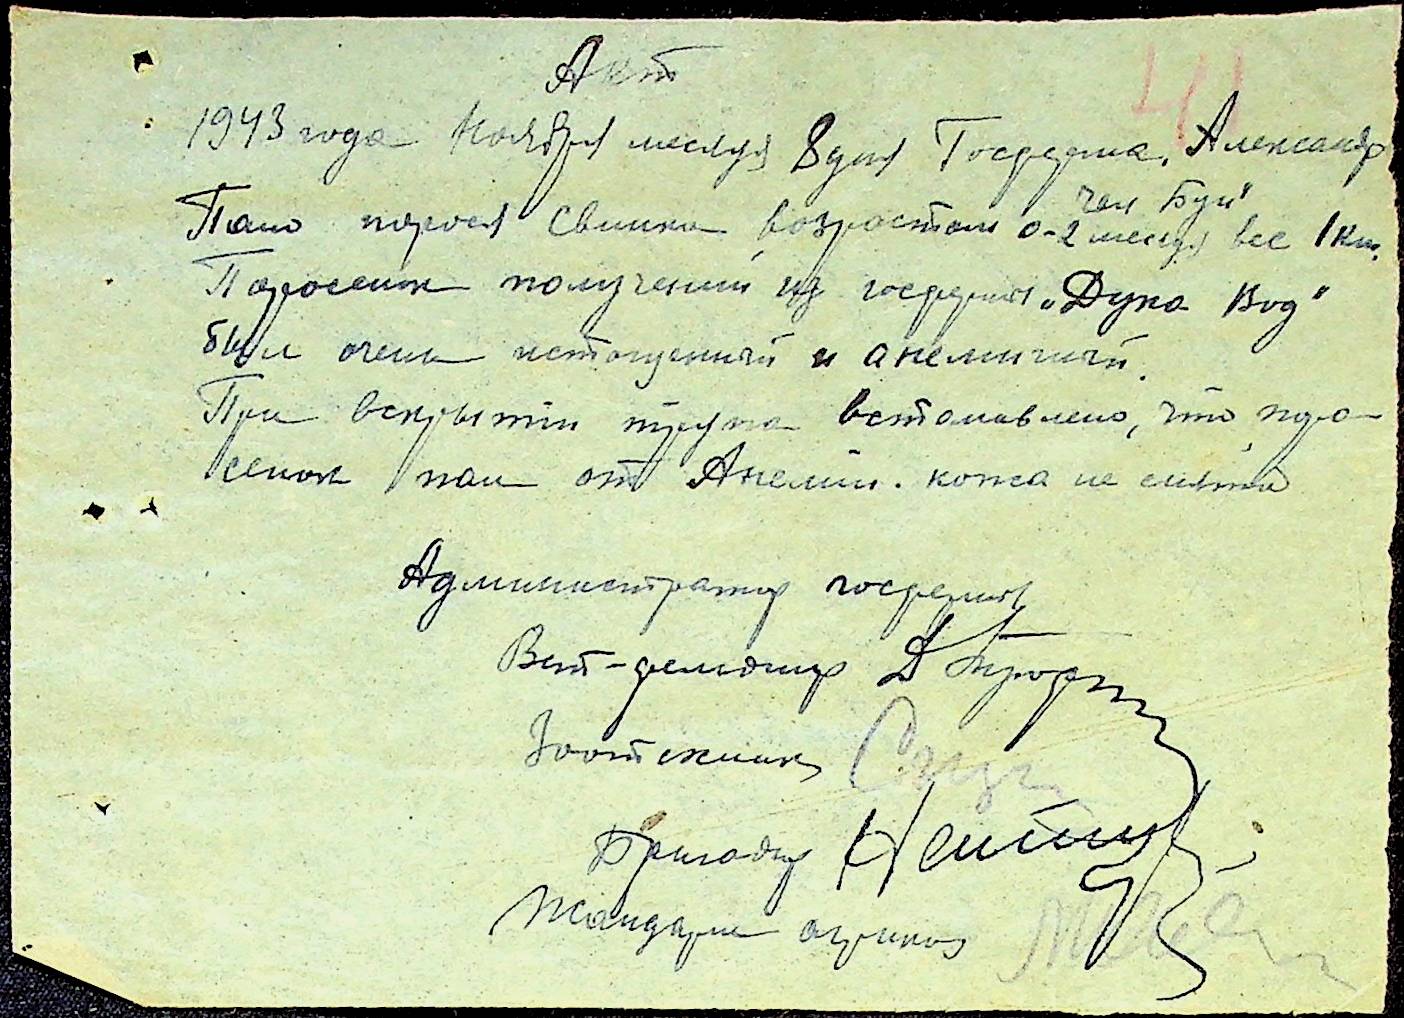 41
Акт
1943 года Ноября месяца 8 дня Госферма. Александр
чел Буи"
Пало порося свинка возростом 0-2 месяця вес 1 кг.
Поросенок полученый из госферми „Дука Вод"
был очень истощенный и анемичний.
При вскрытіи трупа встоновлено, что поро-
сенок пал от Анеміи. кожа не снята
Администратор госферми
Вет-фельдшер
Зоотехник
Бригадир
Жандарм агриколь